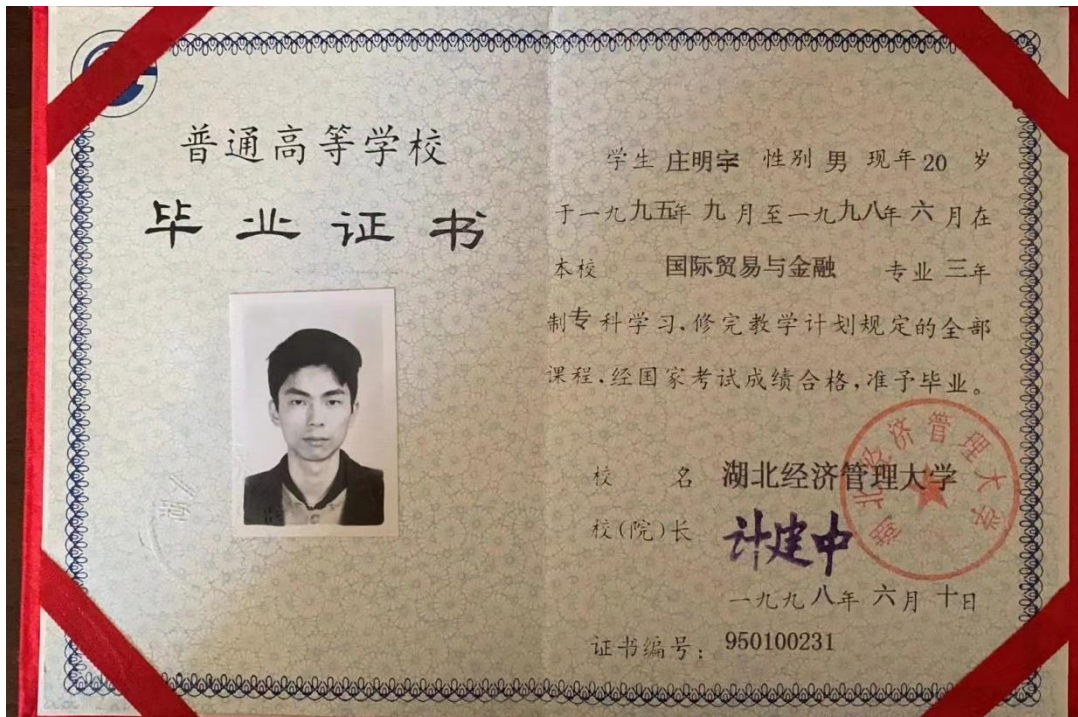 普通高等学校
毕业证书
学生 庄明宇 性别 男 现年 20 岁
于一九九五年 九 月至一九九八年 六 月在
本校 国际贸易与金融 专业 三年
制专科学习，修完教学计划规定的全部
课程，经国家考试成绩合格，准予毕业。
校 名 湖北经济管理大学
校(院)长 计建中
湖北经济管理大学
一九九八年 六月 十日
证书编号： 950100231